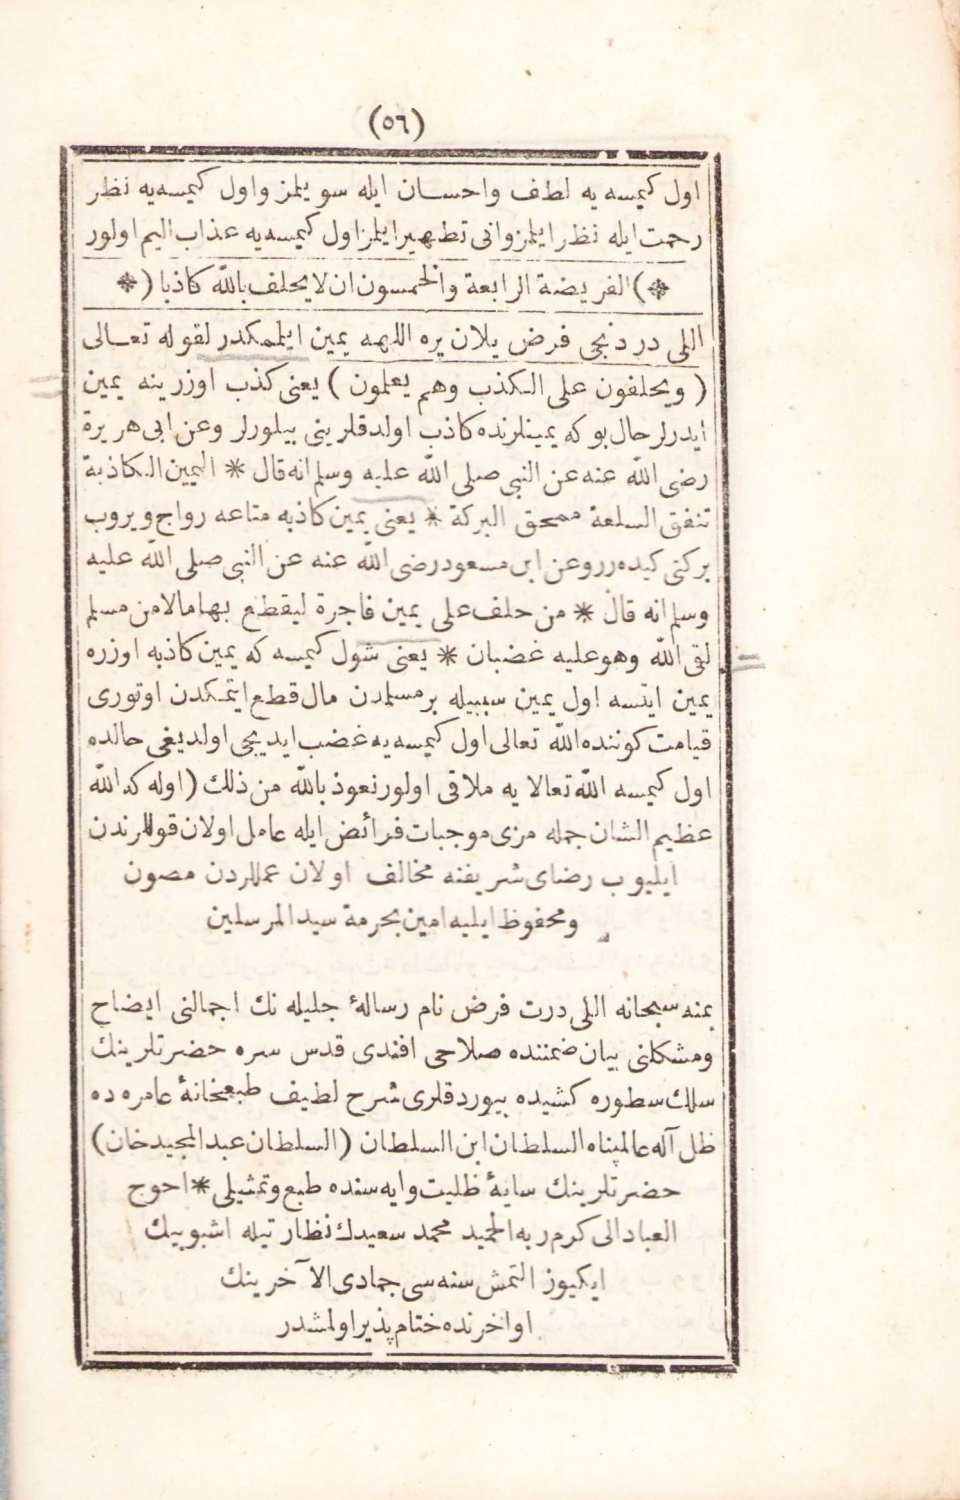 (٥٦)
اول كيمسه يه لطف واحسان ايله سويلمز واول كيمسه يه نظر
رحمت ايله نظر ايلمز وانى تطهير ايلمز اول كيمسه يه عذاب اليم اولور
*) الفريضة الرابعة والخمسون ان لا يحلف بالله كاذبا (*
اللى دردنجى فرض يلان يره اللهه يمين ايلممكدر لقوله تعالى
( ويحلفون على الكذب وهم يعلمون ) يعنى كذب اوزرينه يمين
ايدرلر حال بو كه يمينلرنده كاذب اولدقلرينى بيلورلر وعن ابى هريرة
رضى الله عنه عن النبى صلى الله عليه وسلم انه قال * اليمين الكاذبة
تنفق السلعة ممحق البركة * يعنى يمين كاذبه متاعه رواج ويروب
بركتى كيده رر وعن ابن مسعود رضى الله عنه عن النبى صلى الله عليه
وسلم انه قال * من حلف على يمين فاجرة ليقطع بها مالا من مسلم
لقى الله وهو عليه غضبان * يعنى شول كيمسه كه يمين كاذبه اوزره
يمين ايتسه اول يمين سببيله بر مسلمدن مال قطع ايتمكدن اوتورى
قيامت كوننده الله تعالى اول كيمسه يه غضب ايديجى اولديغى حالده
اول كيمسه الله تعالا يه ملاقى اولور نعوذ بالله من ذلك ( اوله كه الله
عظيم الشان جمله مزى موجبات فرائض ايله عامل اولان قوللرندن
ايليوب رضاى شريفنه مخالف اولان عمللردن مصون
ومحفوظ ايليه امين بحرمة سيد المرسلين
بمنه سبحانه اللى درت فرض نام رسالۀ جليله نك اجمالنى ايضاح
ومشكلنى بيان ضمننده صلاحى افندى قدس سره حضرتلرينك
سلك سطوره كشيده بيوردقلرى شرح لطيف طبعخانۀ عامره ده
ظل آله عالمپناه السلطان ابن السلطان (السلطان عبد المجيد خان)
حضرتلرينك سايۀ ظليت وايه سنده طبع وتمثيلى * احوج
العباد الى كرم ربه الحميد محمد سعيدك نظارتيله اشبو بيك
ايكيوز التمش سنه سى جمادى الآخرينك
اواخرنده ختام پذير اولمشدر